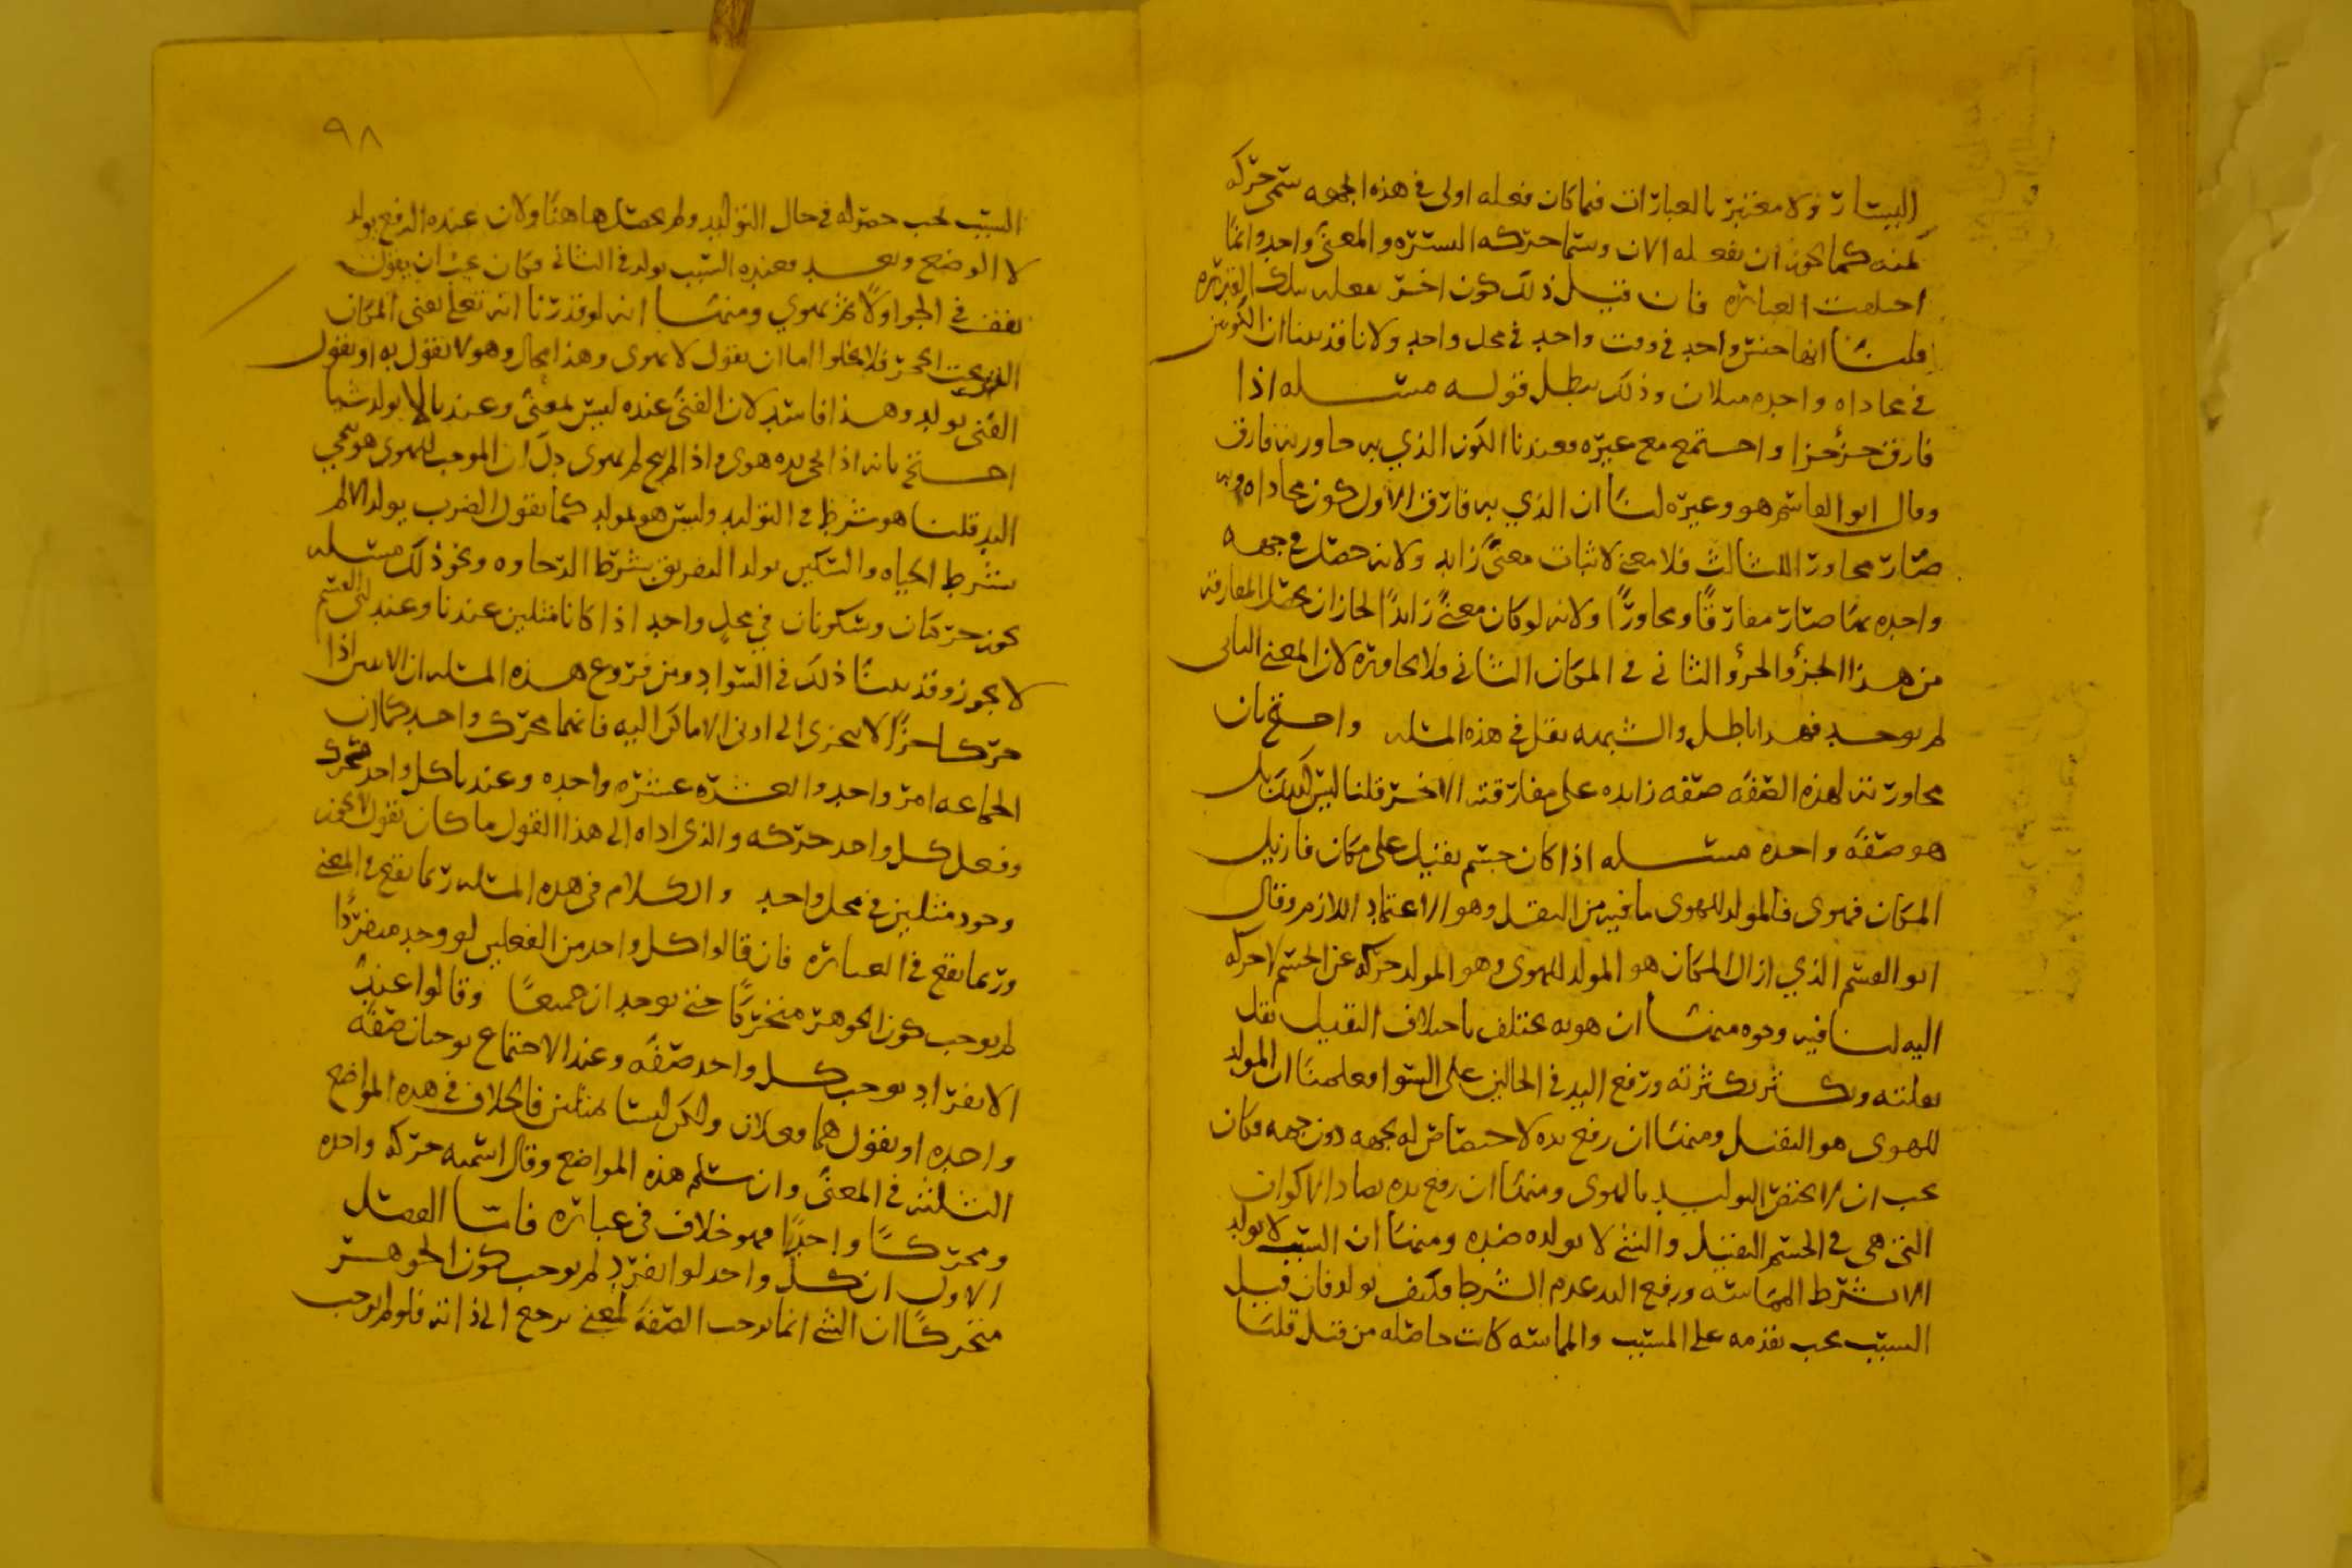 اليسار ولا معتبر بالعبارات فما كان فعله اولى في هذه الجهه سمى حركه
يمنه كما يجوز ان يفعله الان وسما حركه اليسره والمعنى واحد وانما
اختلفت العباره فان قيل ذلك كون اخر يفعله بتلك القدره
قلنا انها جنس واحد في وقت واحد في محل واحد ولانا قد بينا ان الكونين
في محاداه واحده مثلان وذلك يبطل قوله مسله اذا
فارق جزء جزا واجتمع مع غيره فعندنا الكون الذي به جاور به فارق
وقال ابو القاسم هو وغيره لنا ان الذي به فارق الاول كون محاداه وبه
صار مجاورا للثالث فلا معنى لاثبات معنى زايد ولانه حصل في جهه
واحده بما صار مفارقا ومجاورا ولانه لو كان معنى زايدا لجاز ان تحصل المفارقه
من هذا الجزء والجزء الثاني في المكان الثاني فلا يجاوره لان المعنى الثاني
لم يوجد فهذا باطل والشبهه تقل في هذه المسله واحتج بان
مجاورته لهذه الصفه صفه زايده على مفارقته الاخر قلنا ليس كذلك بل
هو صفه واحده مسله اذا كان جسم ثقيل على مكان فازيل
المكان فهوى فالمولد للهوى ما فيه من الثقل وهو الاعتماد اللازم وقال
ابو القسم الذي ازال المكان هو المولد للهوى وهو المولد حركه عن الجسم لا حركه
اليه لنا فيه وجوه منها ان هويه يختلف باختلاف الثقيل يقل
بقلته ويكثر بكثرته ورفع اليد في الحالين على السوا فعلمنا ان المولد
للهوى هو الثقل ومنها ان رفع يده لا اختصاص له بجهه دون جهه فكان
يجب ان لا يختص التوليد بالهوى ومنها ان رفع يده يضاد الاكوان
التي هي في الجسم الثقيل والشي لا يولده ضده ومنها ان السبب لا يولد
الا بشرط المماسه ورفع اليد عدم الشرط فكيف يولد فان قيل
السبب يجب تقدمه على المسبب والمماسه كانت حاصله من قبل قلنا
٩٨
السبب يجب حصوله في حال التوليد ولم يحصل هاهنا ولان عنده الرفع يولد
لا الوضع وبعد فعنده السبب يولد في الثاني فكان يجب ان يقف
يقف في الجو اولا ثم يهوي ومنها انه لو قدرنا انه تعالى يفني المكان
الذي تحت الحجر فلا يخلوا اما ان يقول لا يهوى وهذا محال وهو لا يقول به او يقول
الفنى يولد وهذا فاسد لان الفنى عنده ليس بمعنى وعندنا لا يولد شيا
احتج بانه اذا نحى يده هوى واذا لم ينح لم يهوى دل ان الموجب للهوى هو تنحي
اليد قلنا هو شرط في التوليد وليس هو بمولد كما نقول الضرب يولد الالم
بشرط الحياه والسكين يولد التفريق بشرط الرخاوه ونحو ذلك مسله
يجوز حركتان وسكونان في محل واحد اذا كانا مثلين عندنا وعند ابي القسم
لا يجوز وقد بينا ذلك في السواد ومن فروع هذه المسله ان الاثنين اذا
حركا جزا لا يتجزى الى ادنى الاماكن اليه فانهما محرك واحد كما ان
الجماعه امر واحد والعشره عشره واحده وعندنا كل واحد محرك
وفعل كل واحد حركه والذي اداه الى هذا القول ما كان يقول لا يجوز
وجود مثلين في محل واحد والكلام في هذه المسله ربما يقع في المعنى
وربما يقع في العباره فان قالوا كل واحد من الفعلين لو وجد منفردا
لم يوجب كون الجوهر متحركا حتى يوجدان جميعا وقالوا عند
الانفراد يوجب كل واحد صفه وعند الاجتماع يوجبان صفه
واحده او يقول هما فعلان ولكن ليسا مثلين فالخلاف في هذه المواضع
الثلثه في المعنى وان سلم هذه المواضع وقال اسميه حركه واحده
ومحركا واحدا فهو خلاف في عباره فاما الفصل
الاول ان كل واحد لو انفرد لم يوجب كون الجوهر
متحركا ان الشي انما يوجب الصفه لمعنى يرجع الى ذاته فلو لم يوجب